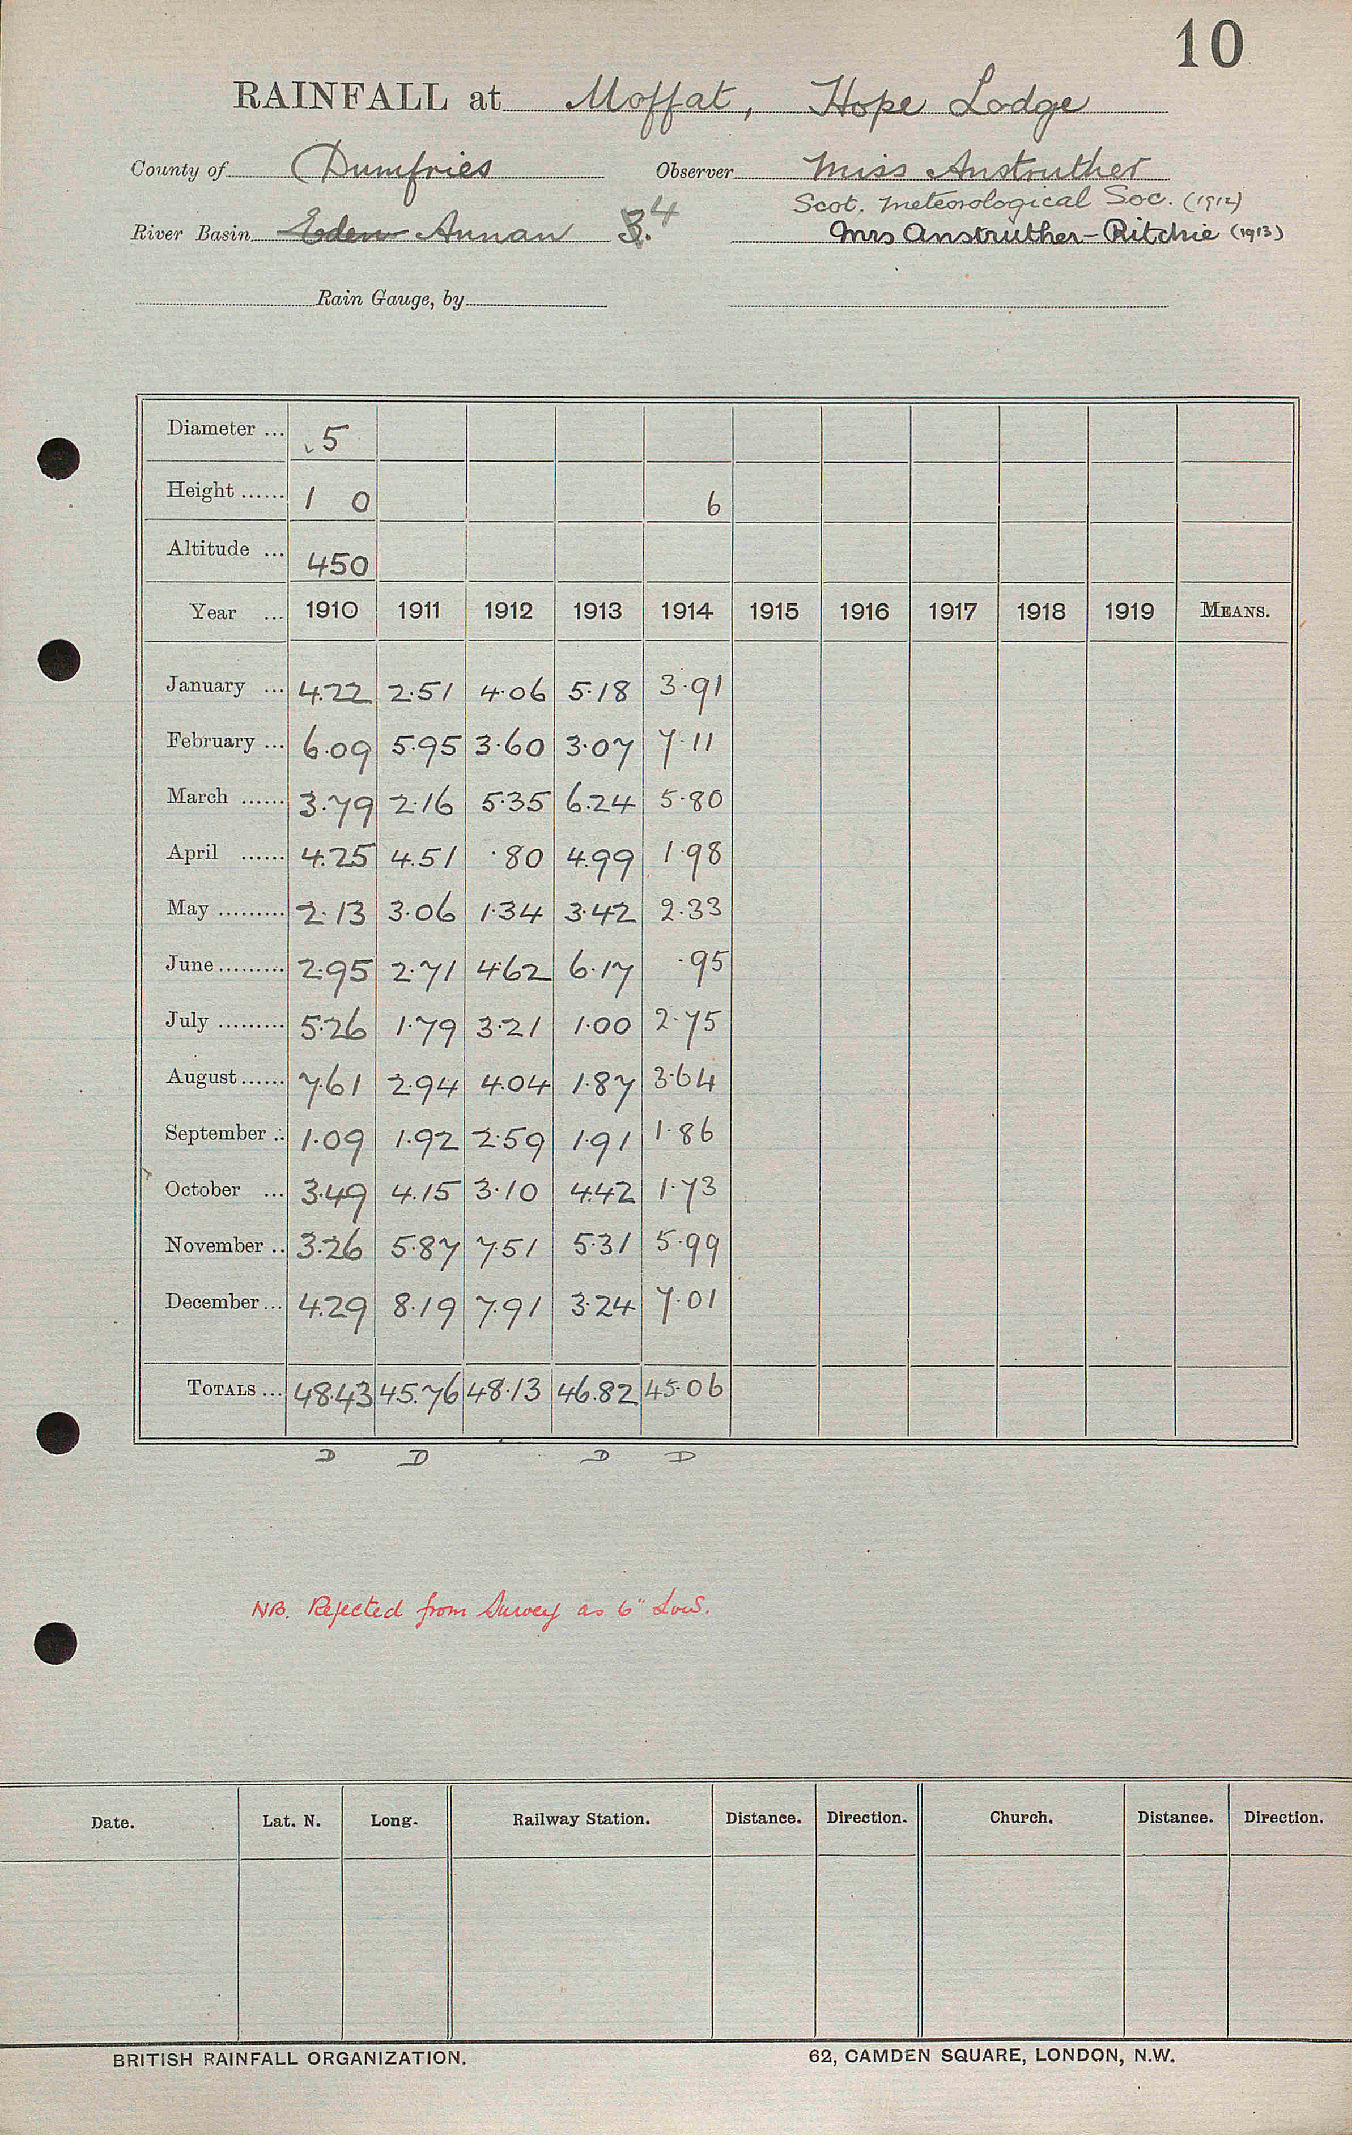 10
RAINFALL at Moffat, Hope Lodge
County of Dumfries Observer Miss Anstruther
Scot. Meteorological Soc. (1912)
River Basin Eden Annan 3.4 Mrs Anstruther-Ritchie (1913)
Rain Gauge, by
Diameter ... 5
Height ...... 1 0 6
Altitude ... 450
Year ... 1910 1911 1912 1913 1914 1915 1916 1917 1918 1919 MEANS.
January ... 4.22 2.51 4.06 5.18 3.91
February ... 6.09 5.95 3.60 3.07 7.11
March ...... 3.79 2.16 5.35 6.24 5.80
April ...... 4.25 4.51 .80 4.99 1.98
May ......... 2.13 3.06 1.34 3.42 2.33
June ......... 2.95 2.71 4.62 6.17 .95
July ......... 5.26 1.79 3.21 1.00 2.75
August ...... 7.61 2.94 4.04 1.87 3.64
September .. 1.09 1.92 2.59 1.91 1.86
October ... 3.49 4.15 3.10 4.42 1.73
November .. 3.26 5.87 7.51 5.31 5.99
December ... 4.29 8.19 7.91 3.24 7.01
TOTALS ... 48.43 45.76 48.13 46.82 45.06
D D D D
NB. Rejected from Survey as 6" Low.
Date. Lat. N. Long. Railway Station. Distance. Direction. Church. Distance. Direction.
BRITISH RAINFALL ORGANIZATION. 62, CAMDEN SQUARE, LONDON, N.W.